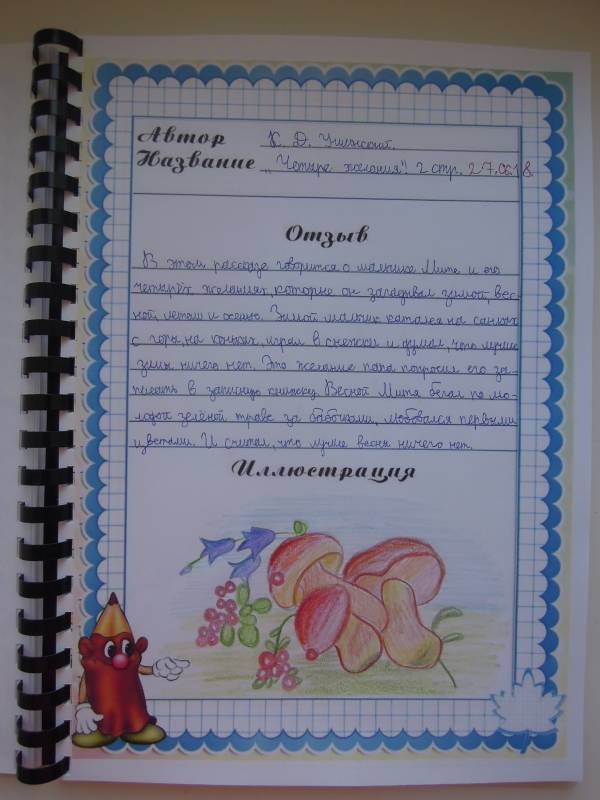 Автор К. Д. Ушинский.
Название „Четыре желания" 2 стр. 27.06.18
Отзыв
В этом рассказе говорится о мальчике Мите и его
четырёх желаниях, которые он загадывал зимой, вес-
ной, летом и осенью. Зимой мальчик катался на санках
с горы, на коньках, играл в снежки и думал, что лучше
зимы ничего нет. Это желание папа попросил его за-
писать в записную книжку. Весной Митя бегал по мо-
лодой зелёной траве за бабочками, любовался первыми
цветами. И считал, что лучше весны ничего нет.
Иллюстрация